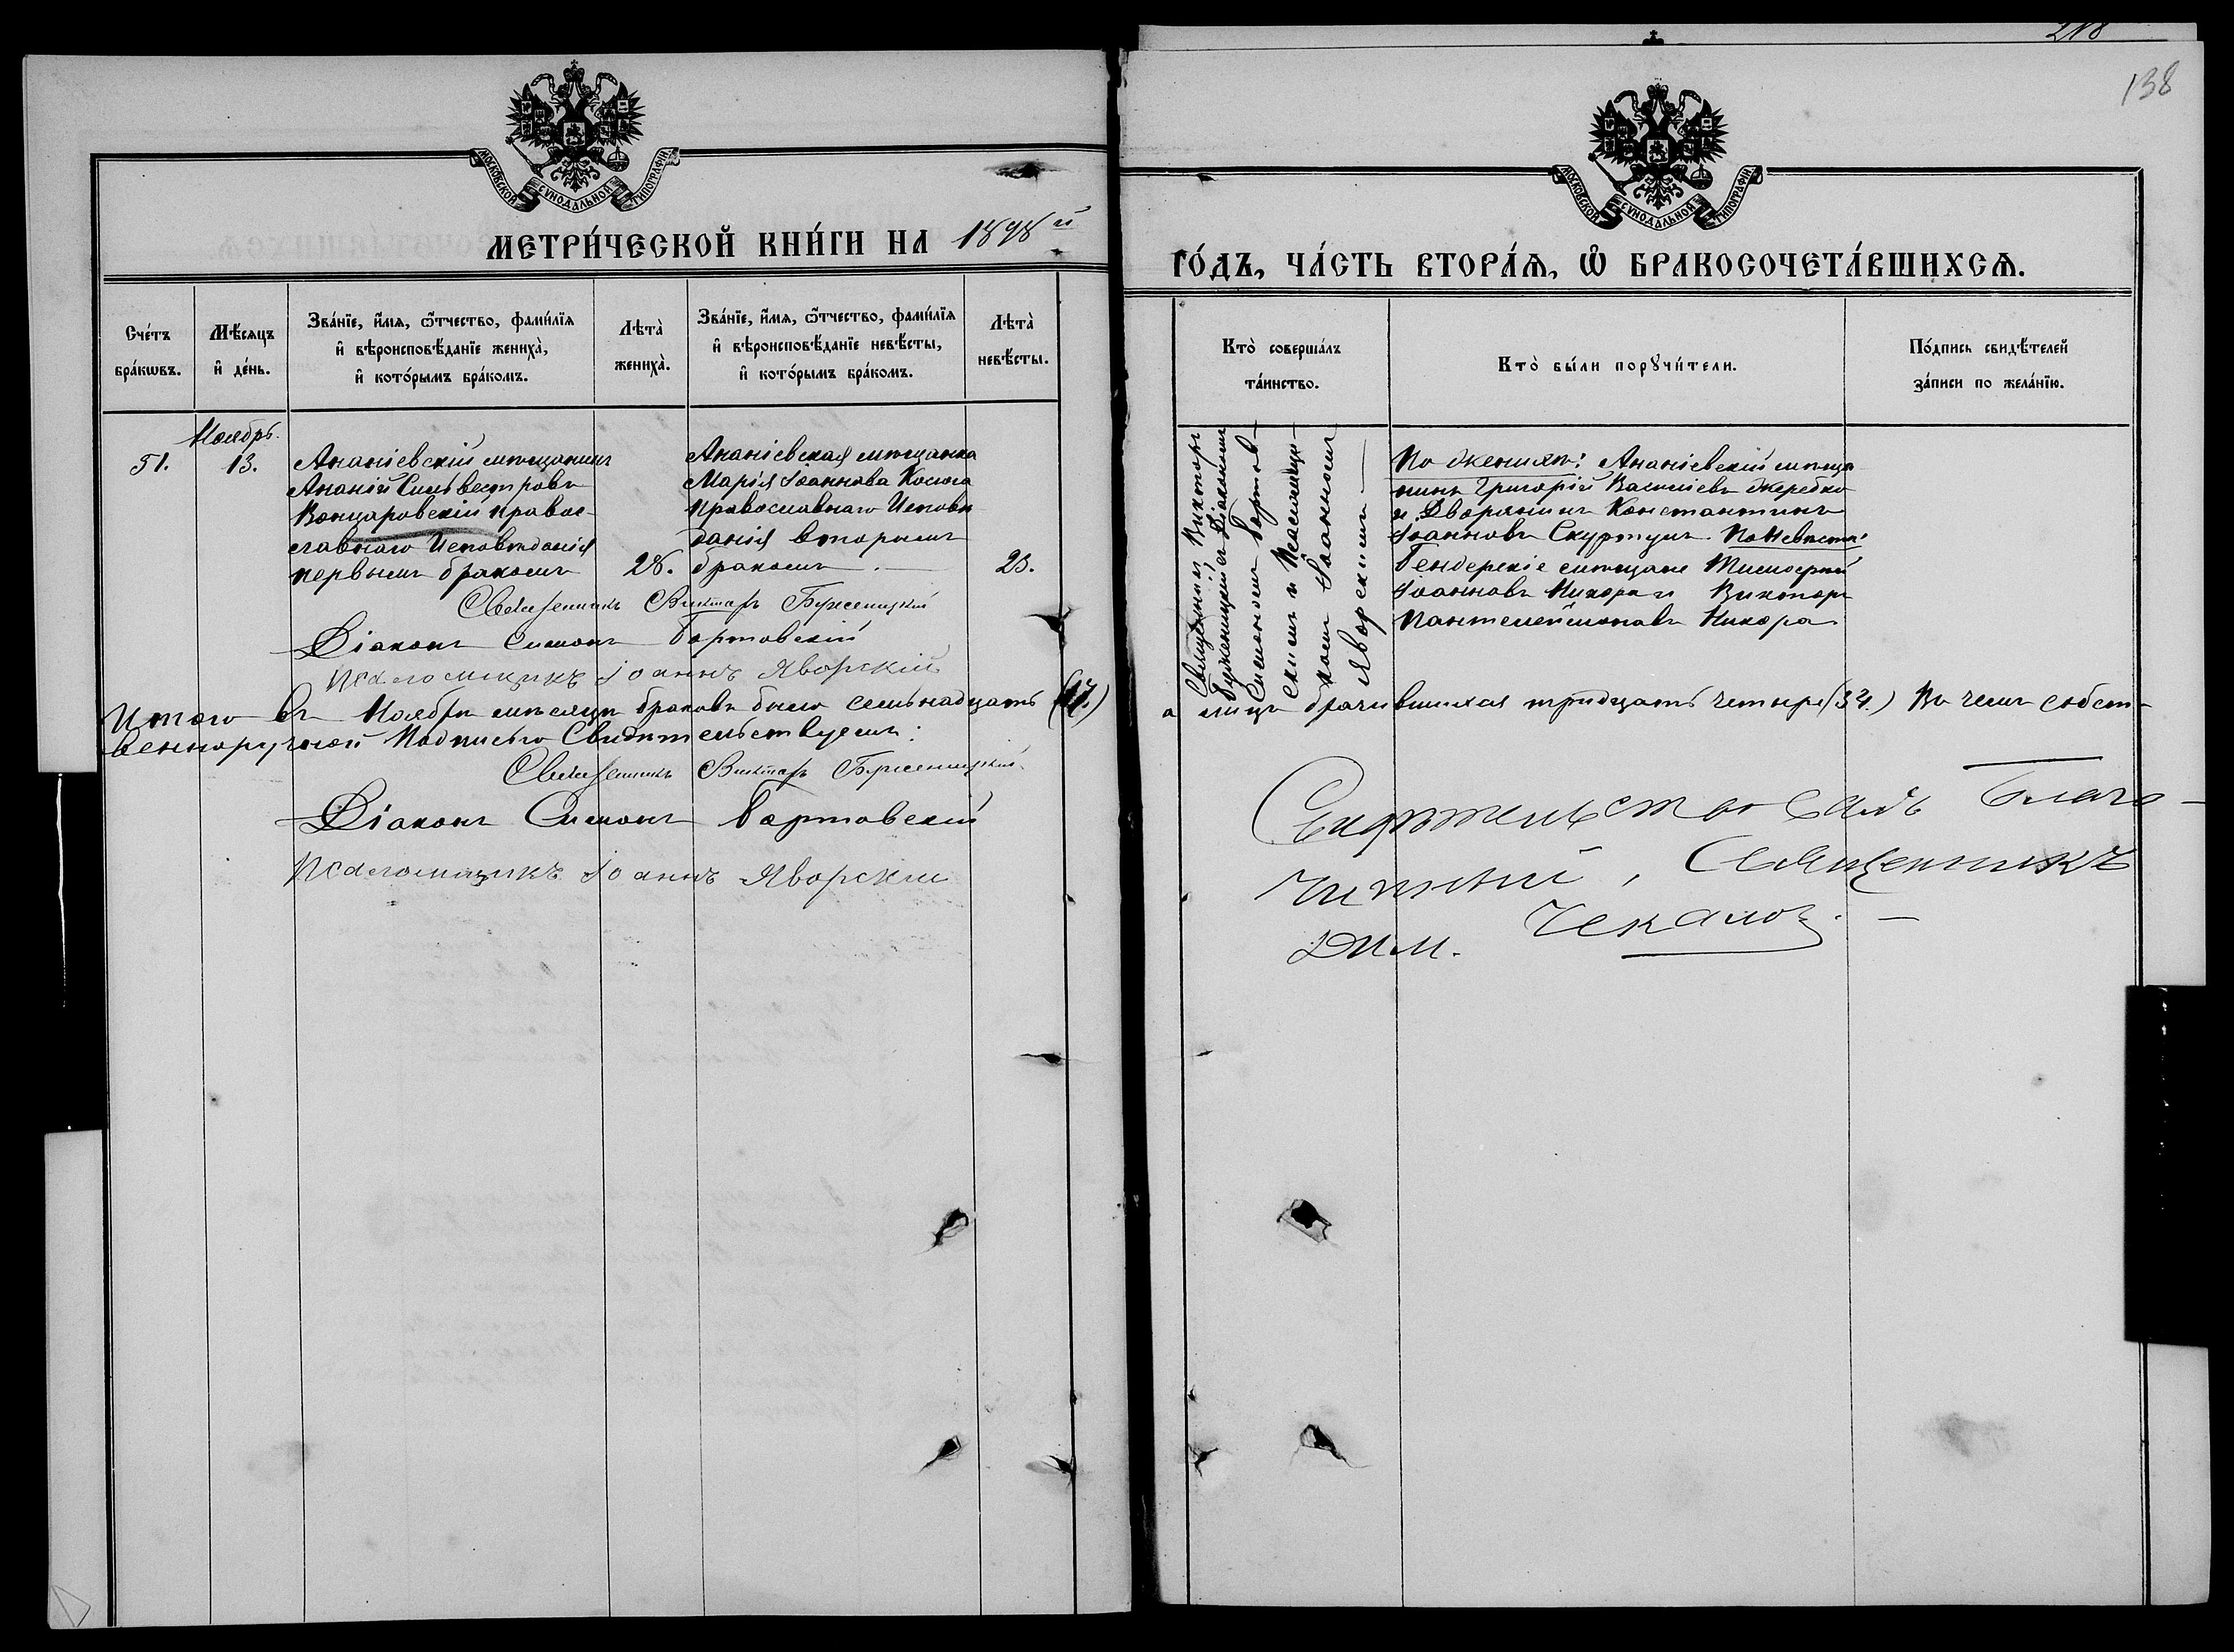 218
138
МОСКОВСКОЙ СѴНОДАЛЬНОЙ ТИПОГРАФІИ
МЕТРИ́ЧЕСКОЙ КНИ́ГИ НА 1898й
МОСКОВСКОЙ СѴНОДАЛЬНОЙ ТИПОГРАФІИ
ГО́ДЪ, ЧА́СТЬ ВТОРА́Ѧ, Ѽ БРАКОСОЧЕТА́ВШИХСѦ.
Сче́тъ
бра́кѡвъ.
Мѣ́сяцъ
и҆ де́нь.
Зва́нїе, и҆́мя, ѻ҆́тчество, фами́лїя
и҆ вѣроисповѣ́данїе жениха̀,
и҆ кото́рымъ бра́комъ.
Лѣта̀
жениха̀.
Зва́нїе, и҆́мя, ѻ҆́тчество, фами́лїя
и҆ вѣроисповѣ́данїе невѣ́сты,
и҆ кото́рымъ бра́комъ.
Лѣта̀
невѣ́сты.
Кто̀ соверша́лъ
та́инство.
Кто̀ бы́ли порꙋчи́тели.
По́дпись свидѣ́телей
за́писи по жела́нїю.
51.
Ноябрь.
13.
Ананіевскій мѣщанинъ
Ананій Сильвестровъ
Вонцаровскій правос-
славнаго Исповѣданія
первымъ бракомъ
28.
Ананіевская мѣщанка
Марія Іоаннова
православнаго Исповѣ
данія вторымъ
бракомъ
23.
Священникъ Викторъ
Діакономъ
Симономъ Бортов-
скимъ и Псаломщи-
комъ Іоанномъ
Яворскимъ
По женихѣ: Ананіевскій мѣща
нинъ Григорій Василіевъ Жеребко
и Дворянинъ Константинъ
Іоанновъ Скуртулъ. По Невѣстѣ:
Бендерскіе мѣщане Тимоѳей
Іоанновъ Никора и Викторъ
Пантелеймоновъ Никора
Священникъ Викторъ
Діаконъ Симонъ Бортовскій
Псаломщикъ Іоаннъ Яворскій
Итого въ Ноябрѣ мѣсяцѣ браковъ было семьнадцать (17.)
а лицъ брачившихся тридцать четыре (34.) Въ чемъ собст-
венноручной Подписью Свидѣтельствуемъ:
Священникъ Викторъ
Діаконъ Симонъ Бортовскій
Псаломщикъ Іоаннъ Яворскій
Благо-
чинный, Священникъ
Дим. Чекановъ.